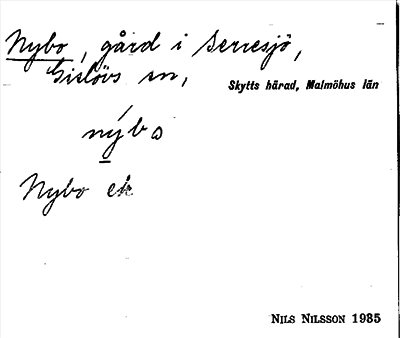 Nybo, gård i Serresjö,
Gislövs sn,
Skytts härad, Malmöhus län
nýbo
Nybo ek
NILS NILSSON 1935